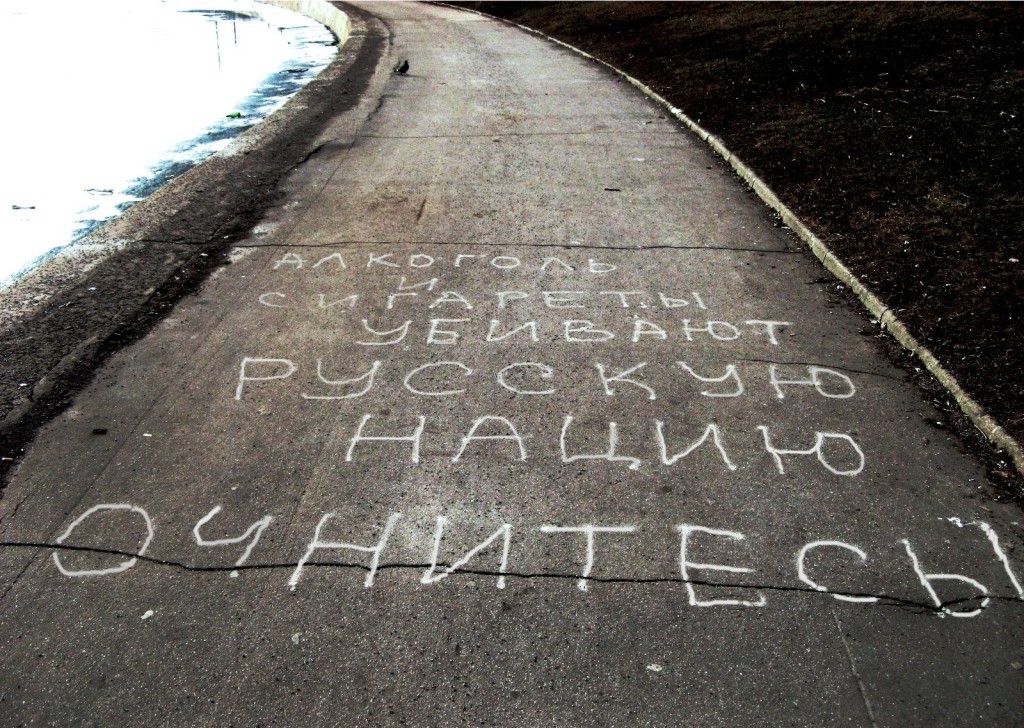 АЛКОГОЛЬ
И
СИГАРЕТЫ
УБИВАЮТ
РУССКУЮ
НАЦИЮ
ОЧНИТЕСЬ!